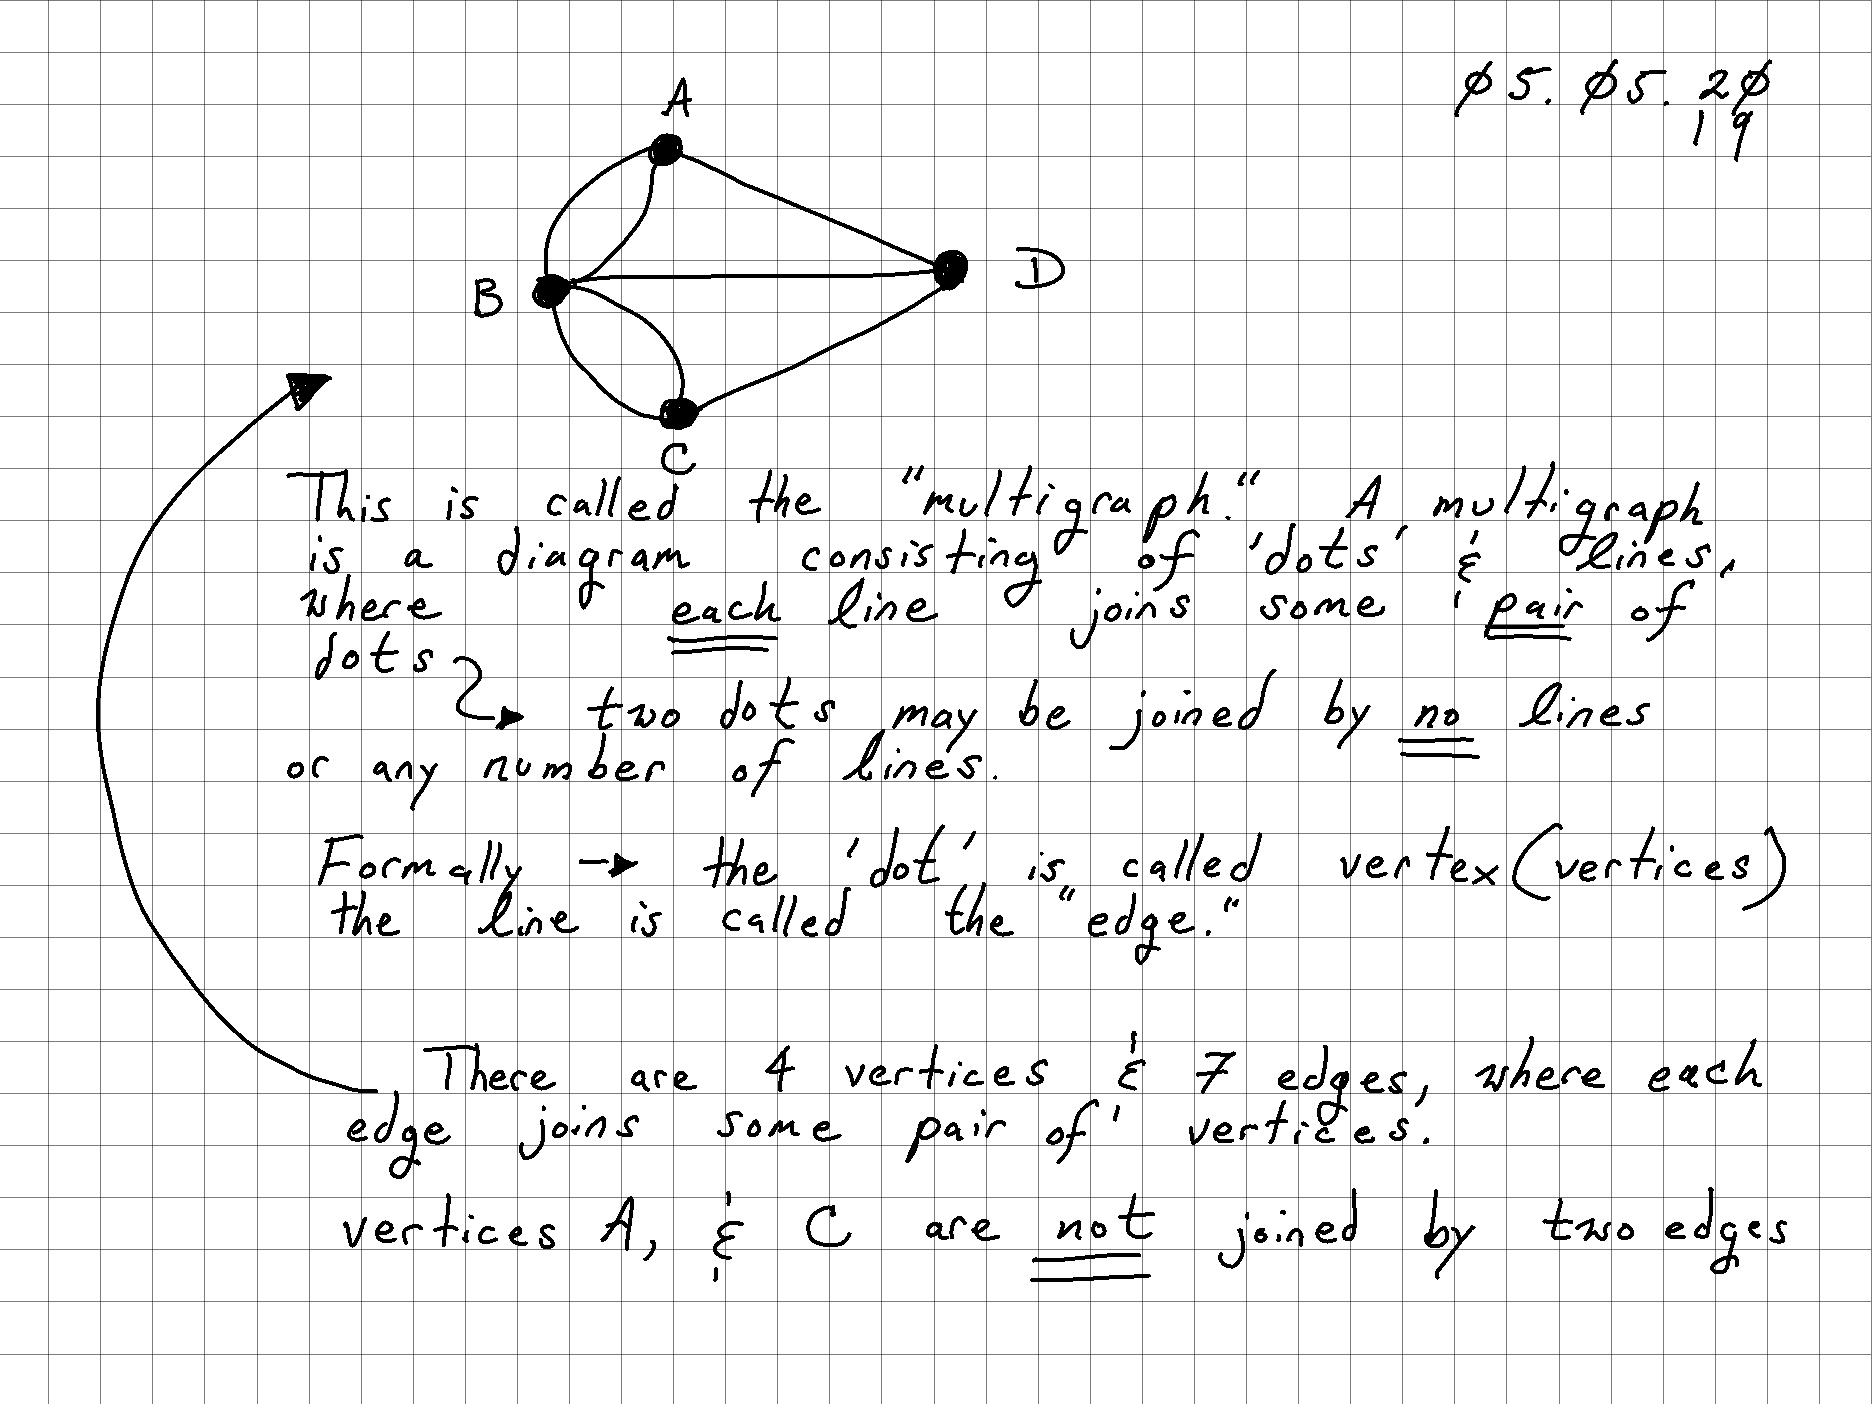 A
Ø5. Ø5. 2Ø
19
B
D
C
This is called the "multigraph." A multigraph
is a diagram consisting of 'dots' & lines,
where each line joins some pair of
dots → two dots may be joined by no lines
or any number of lines.
Formally → the 'dot' is called vertex (vertices)
the line is called the "edge."
There are 4 vertices & 7 edges, where each
edge joins some pair of vertices.
vertices A, & C are not joined by two edges